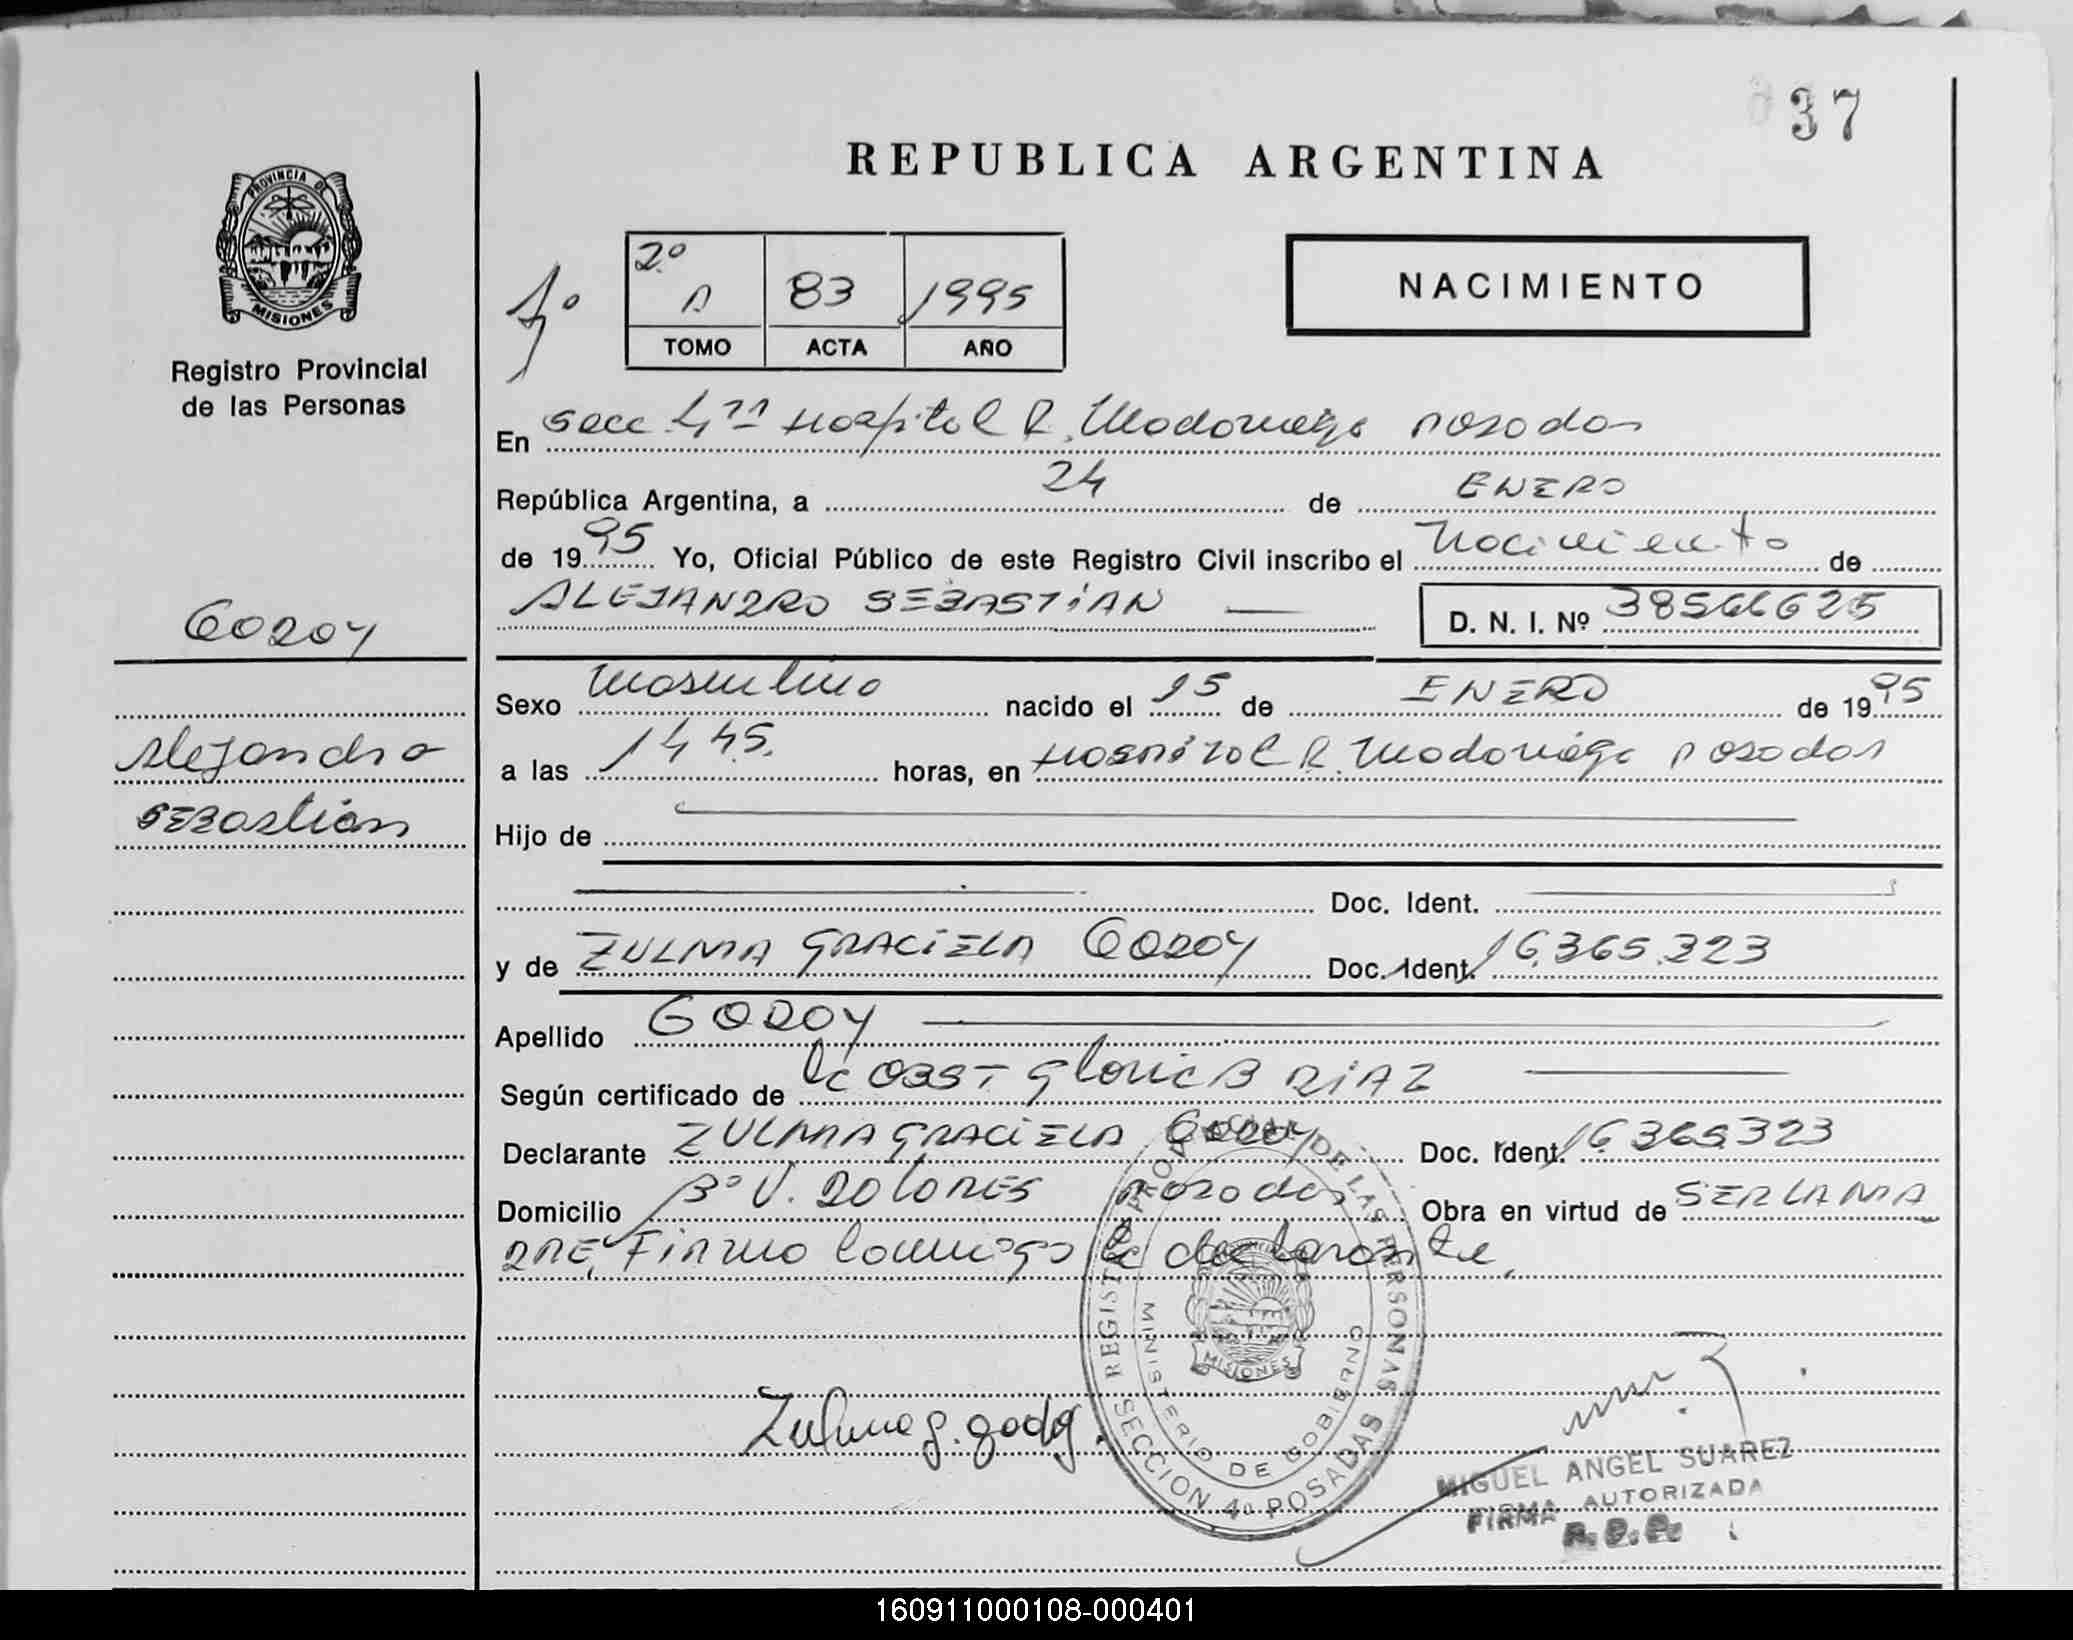 37
REPUBLICA ARGENTINA
PROVINCIA DE
MISIONES
Registro Provincial
de las Personas
4º
2º A 83 1995
TOMO ACTA AÑO
NACIMIENTO
En Secc 4ta Hospital R. Madariaga Posadas
República Argentina, a 24 de ENERO
de 1995 Yo, Oficial Público de este Registro Civil inscribo el Nacimiento de
ALEJANDRO SEBASTIAN
D. N. I. Nº 38566625
GODOY
Alejandro
Sebastián
Sexo Masculino nacido el 15 de ENERO de 1995
a las 14 45. horas, en Hospital R. Madariaga Posadas
Hijo de
Doc. Ident.
y de ZULMA GRACIELA GODOY Doc. Ident. 16.365.323
Apellido GODOY
Según certificado de Lc OBST Gloria B DIAZ
Declarante ZULMA GRACIELA GODOY Doc. Ident. 16.365.323
Domicilio Bº V. DOLORES Posadas Obra en virtud de SER LA MA
DRE, Firma conmigo la declarante.
REGISTRO PROVINCIAL DE LAS PERSONAS
MINISTERIO DE GOBIERNO
MISIONES
SECCION 4º POSADAS
Zulma g. godoy.
MIGUEL ANGEL SUAREZ
FIRMA AUTORIZADA
R. P. P.
160911000108-000401